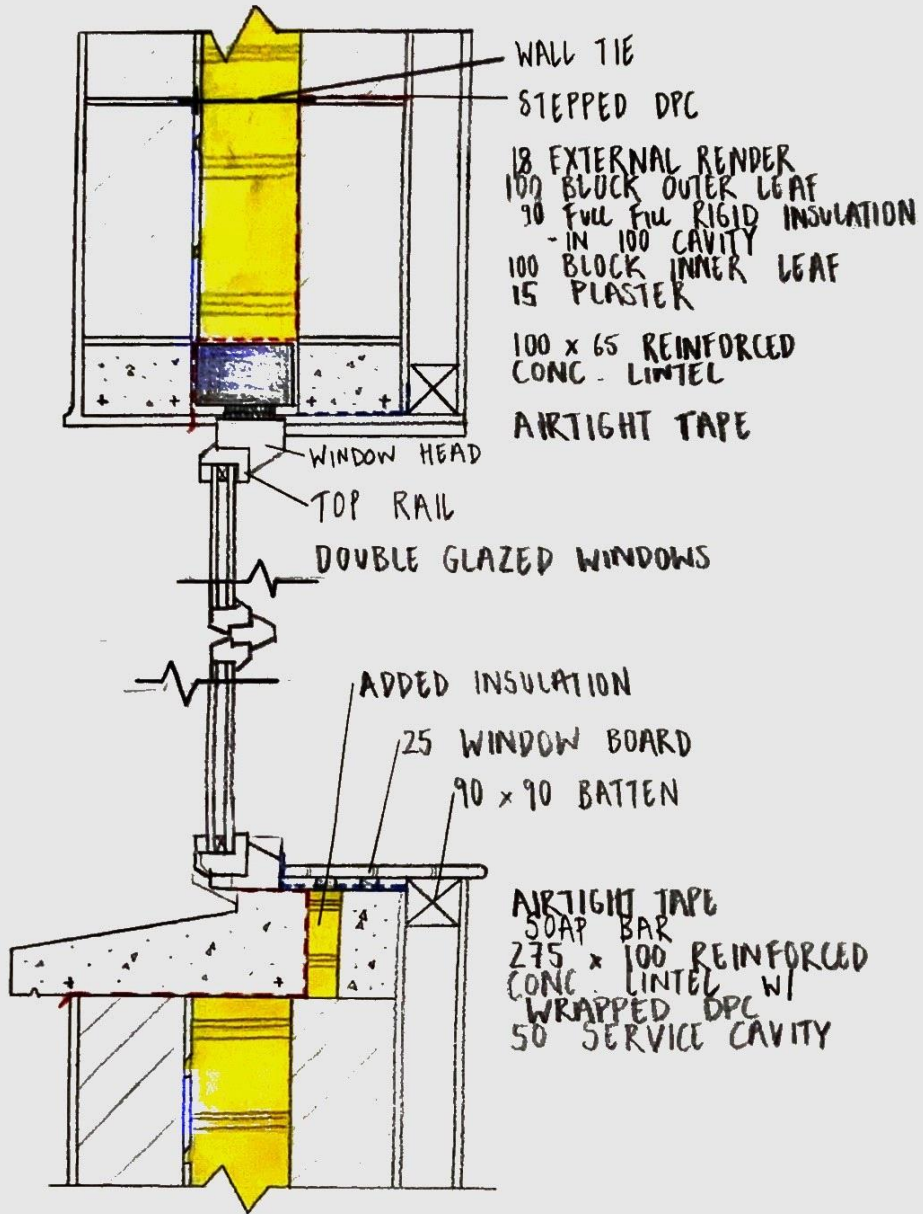 WALL TIE
STEPPED DPC
18 EXTERNAL RENDER
100 BLOCK OUTER LEAF
90 FULL FILL RIGID INSULATION
- IN 100 CAVITY
100 BLOCK INNER LEAF
15 PLASTER
100 x 65 REINFORCED
CONC. LINTEL
AIRTIGHT TAPE
WINDOW HEAD
TOP RAIL
DOUBLE GLAZED WINDOWS
ADDED INSULATION
25 WINDOW BOARD
90 x 90 BATTEN
AIRTIGHT TAPE
SOAP BAR
275 x 100 REINFORCED
CONC. LINTEL W/
WRAPPED DPC
50 SERVICE CAVITY